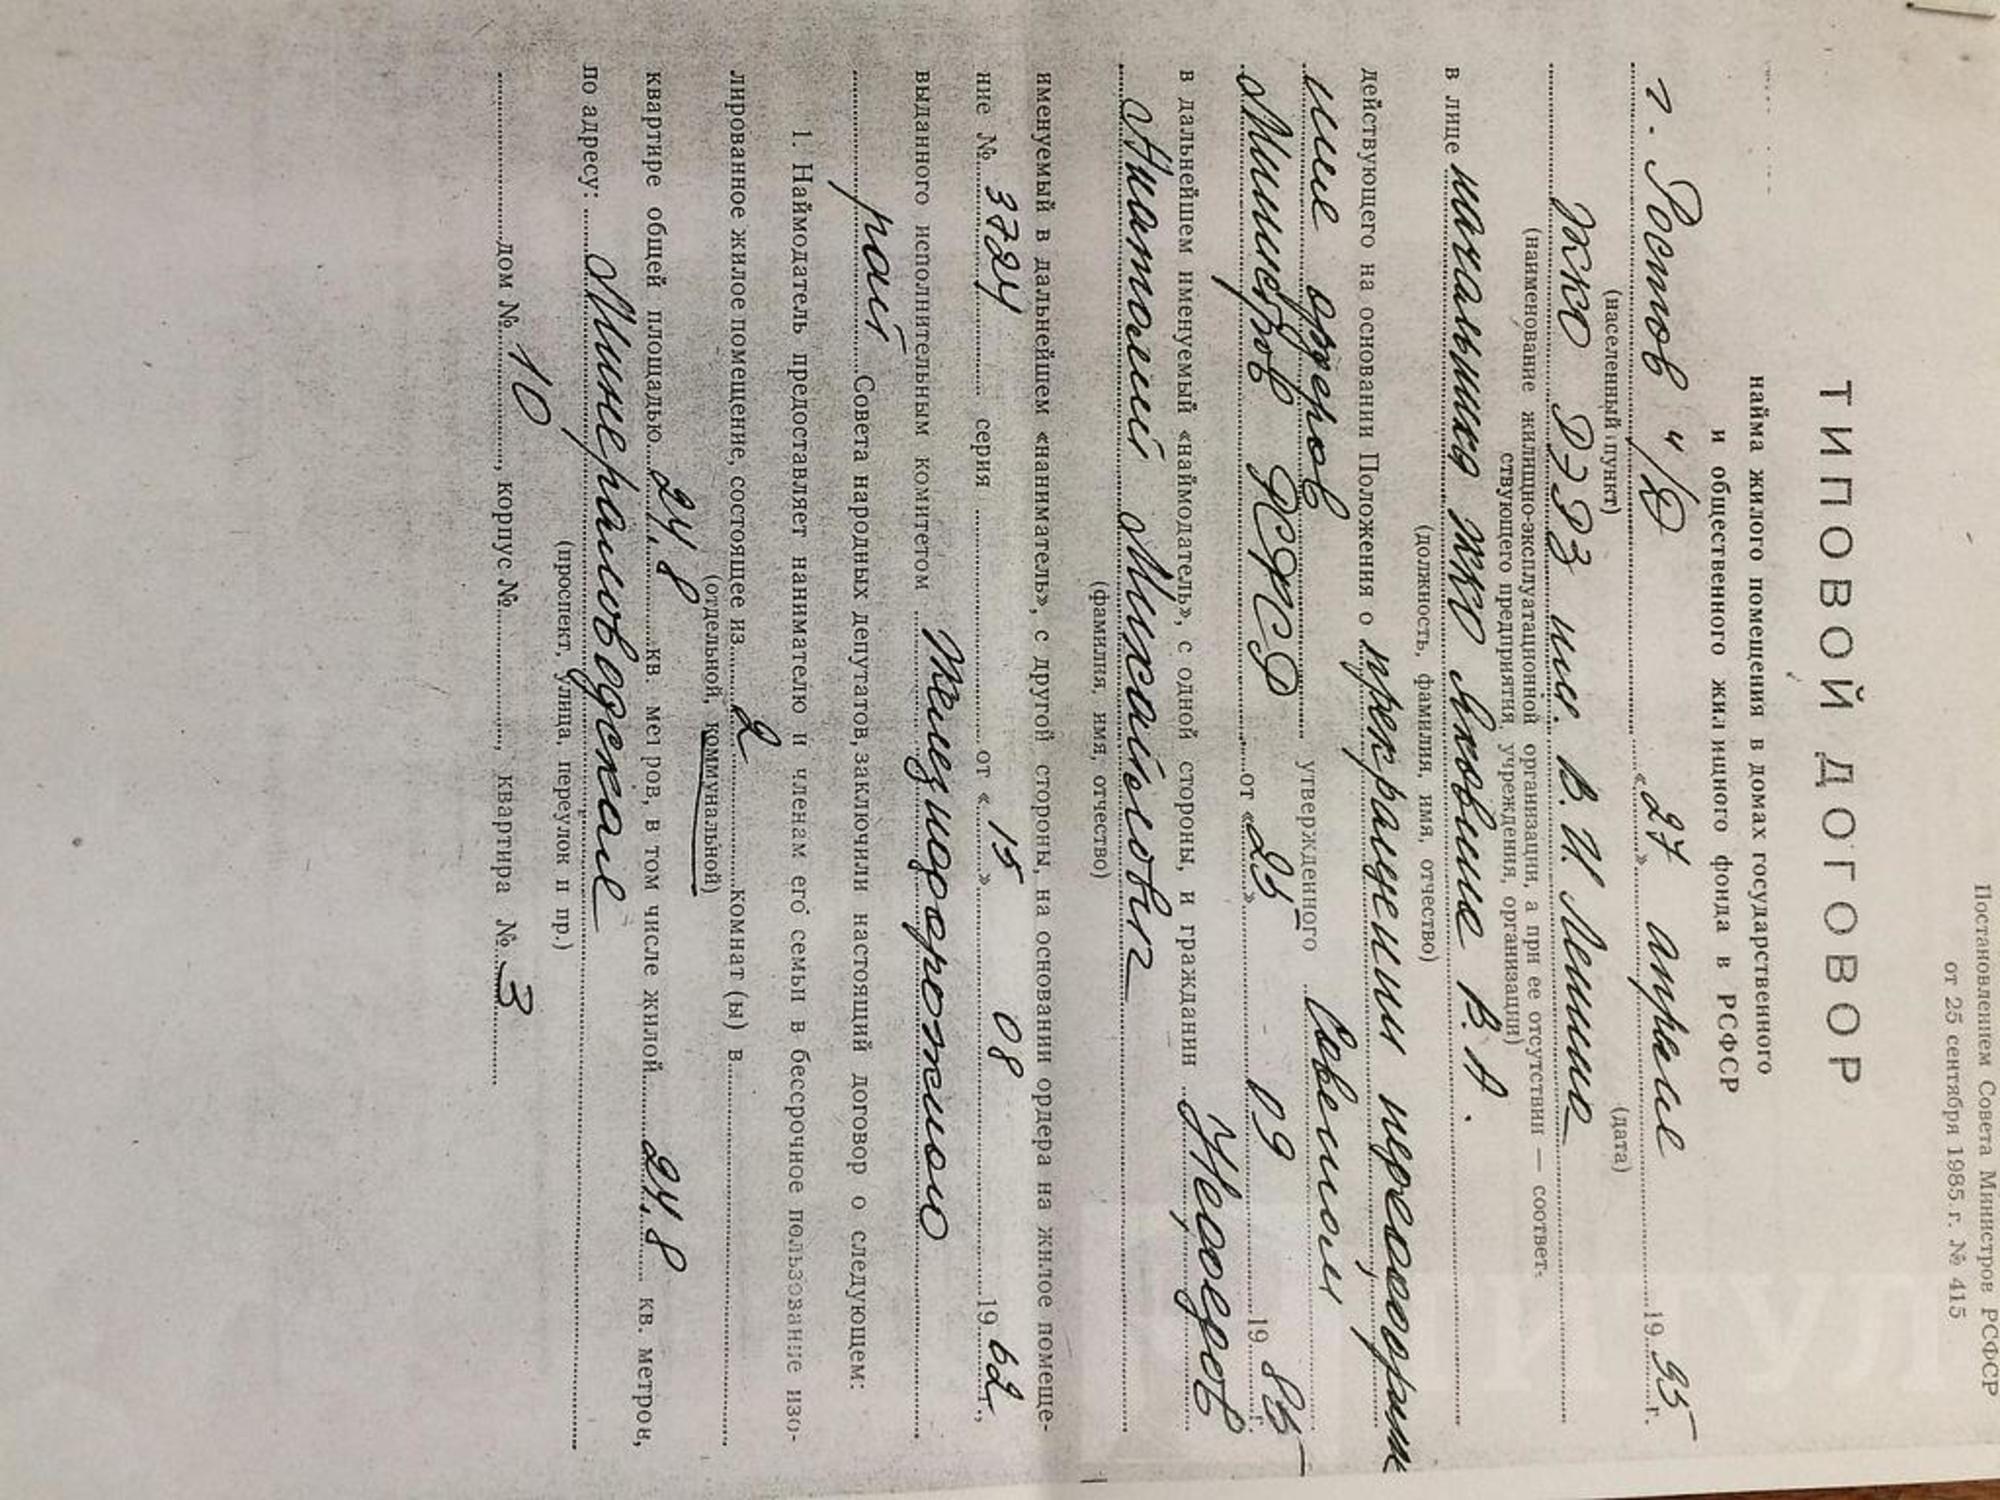 Постановлением Совета Министров РСФСР
от 25 сентября 1985 г. № 415
ТИПОВОЙ ДОГОВОР
найма жилого помещения в домах государственного
и общественного жилищного фонда в РСФСР
г. Ростов н/Д «27» апреля 1995 г.
(населенный пункт) (дата)
ЖКО РЭРЗ им. В. И. Ленина
(наименование жилищно-эксплуатационной организации, а при ее отсутствии — соответ-
ствующего предприятия, учреждения, организации)
в лице начальника ЖКО Яковина В. А.
(должность, фамилия, имя, отчество)
действующего на основании Положения о прекращении переоформле
ние ордеров утвержденного Советом
Министров РСФСР от «25» 09 1985 г.
в дальнейшем именуемый «наймодатель», с одной стороны, и гражданин
Анатолий Михайлович
(фамилия, имя, отчество)
именуемый в дальнейшем «наниматель», с другой стороны, на основании ордера на жилое помеще-
ние № 3724 серия от «15» 08 1962 г.,
выданного исполнительным комитетом Железнодорожного
рай Совета народных депутатов, заключили настоящий договор о следующем:
1. Наймодатель предоставляет нанимателю и членам его семьи в бессрочное пользование изо-
лированное жилое помещение, состоящее из 2 комнат (ы) в
(отдельной, коммунальной)
квартире общей площадью 24,8 кв. метров, в том числе жилой 24,8 кв. метров,
по адресу: Минераловодская
(проспект, улица, переулок и пр.)
дом № 10, корпус №, квартира № 3